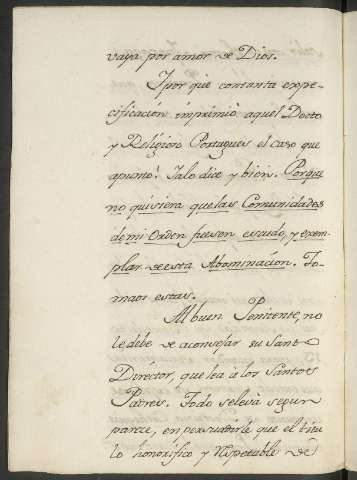 vaya por amor de Dios.
Ypor què contanta expre-
cificación imprimiò aquel Docto
y Religioso Portugues el caso que
apunto? Yalo dice y bien. Porque
no quisiera que las Comunidades
de mi Orden fuesen escudo, y exem-
plar de esta Abominacion. To-
maos estas.
Al buen Penitente, no
le debe de aconsejar su Santo
Director, que lea à los Santos
Padres. Todo se leva segun
parece, en persuadirle que el titu
lo honorifico y respetable de